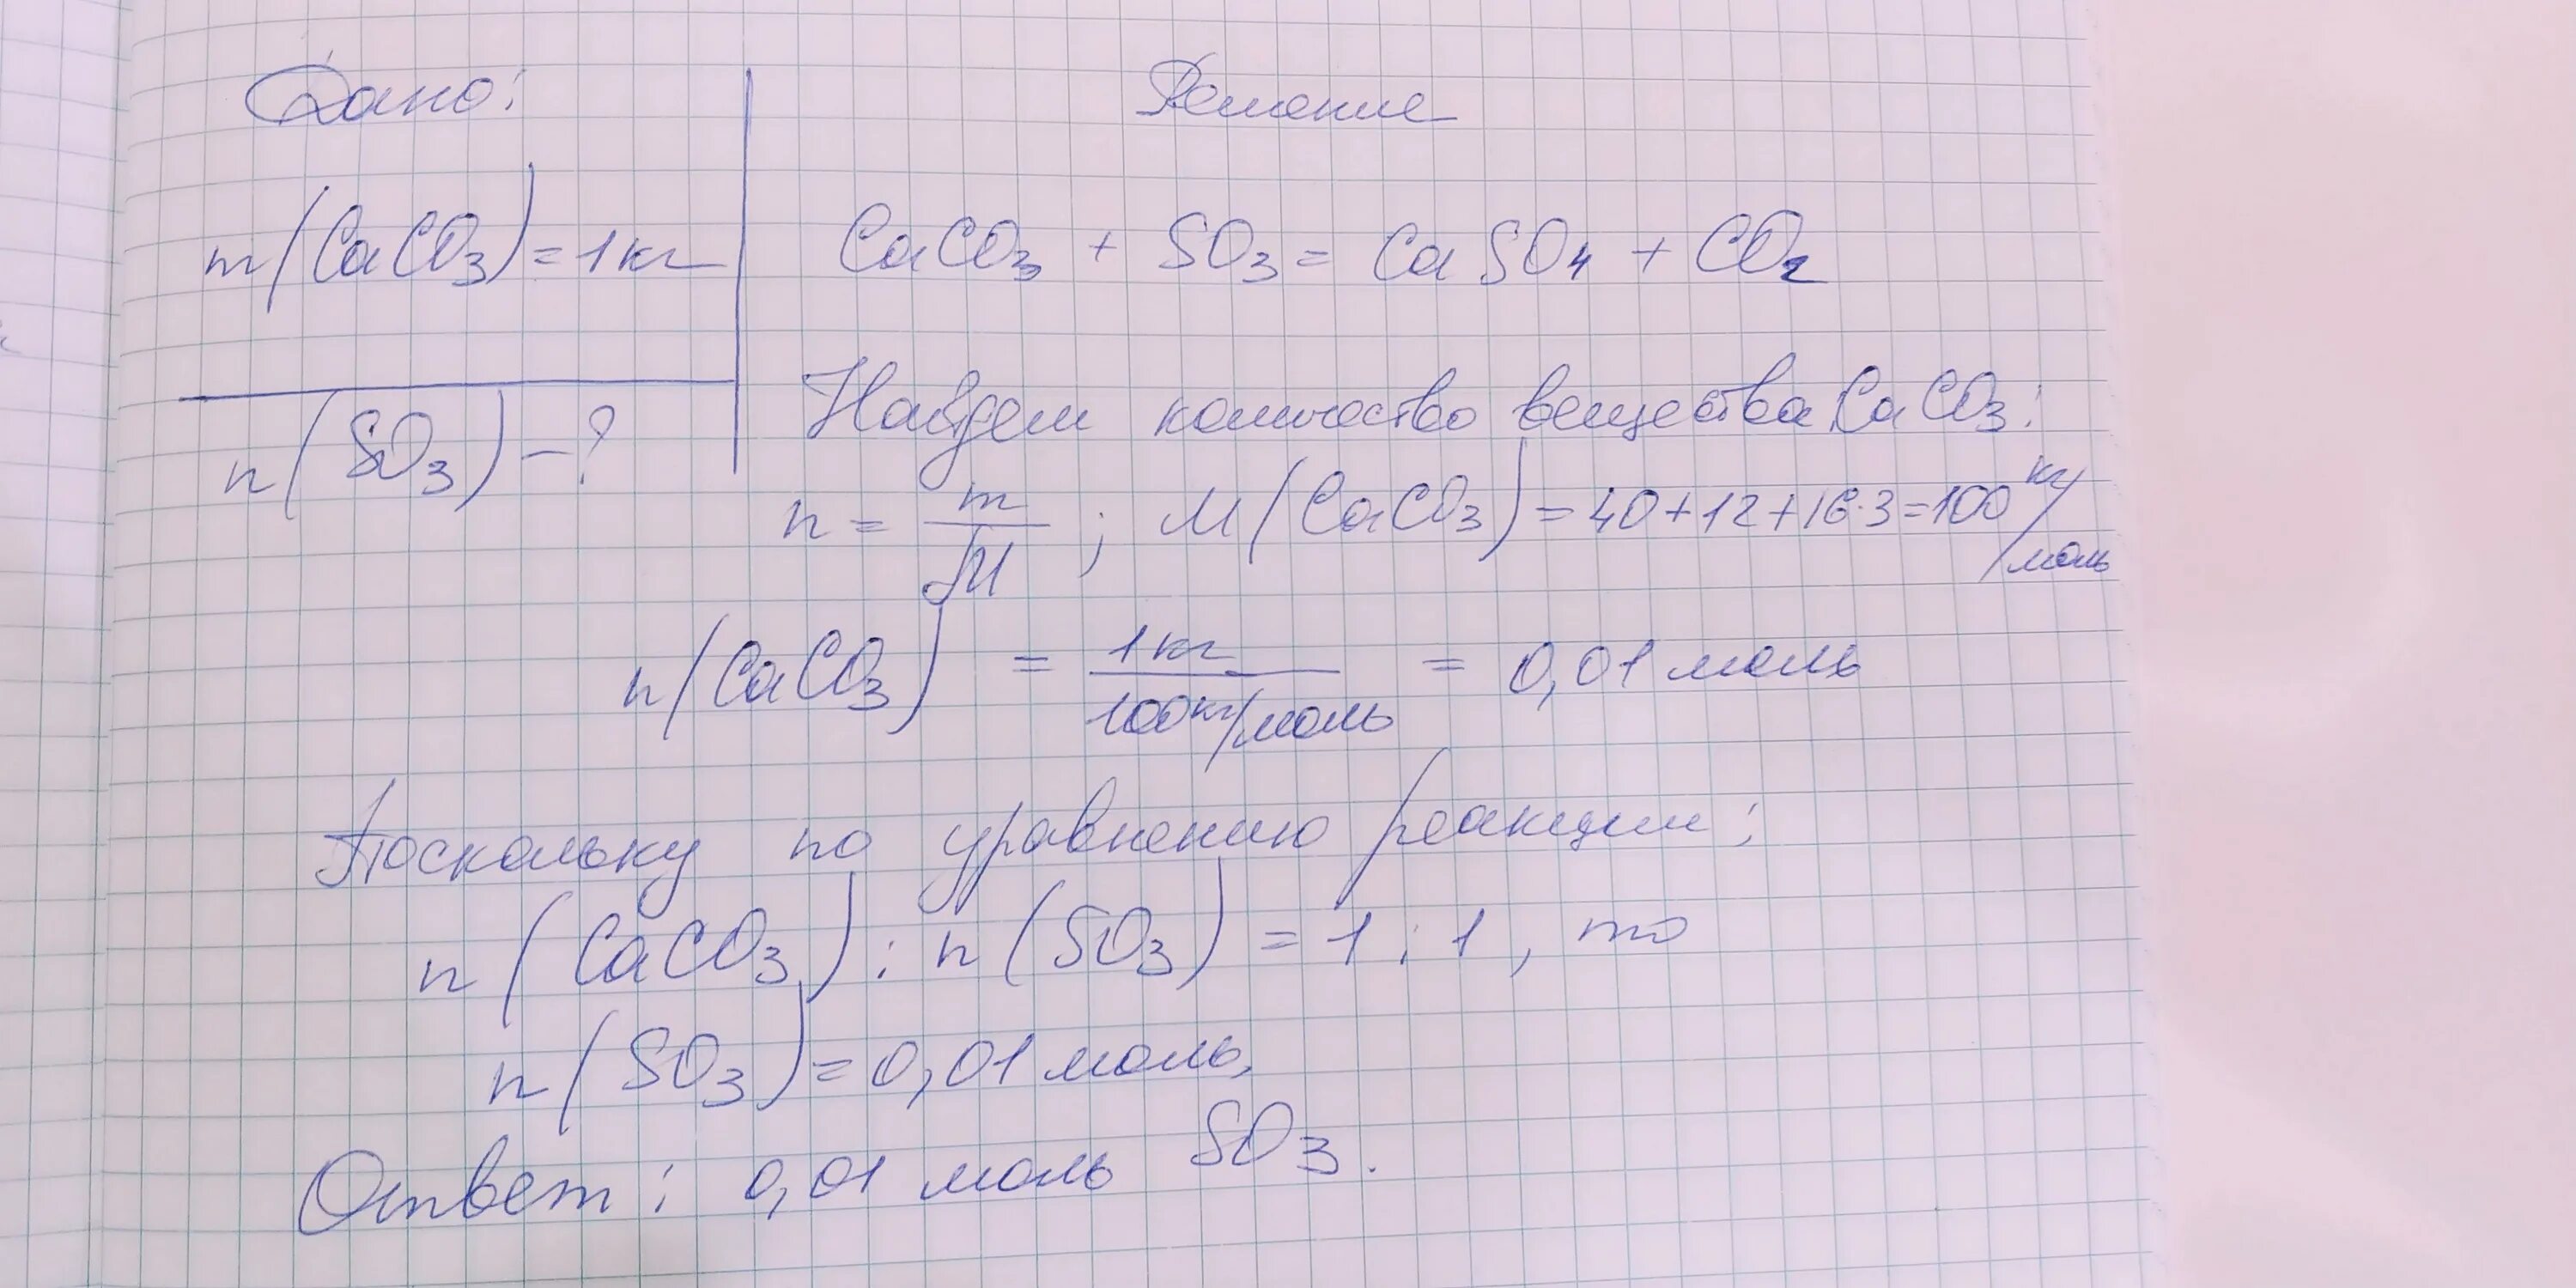 Дано:
m(CaCO3) = 1 кг
n(SO3) - ?
Решение
CaCO3 + SO3 = CaSO4 + CO2
Найдем количество вещества CaCO3:
n = m/M ; M(CaCO3) = 40+12+16·3=100 кг/моль
n(CaCO3) = 1 кг / 100 кг/моль = 0,01 моль
Поскольку по уравнению реакции:
n(CaCO3) : n(SO3) = 1 : 1, то
n(SO3) = 0,01 моль,
Ответ: 0,01 моль SO3.